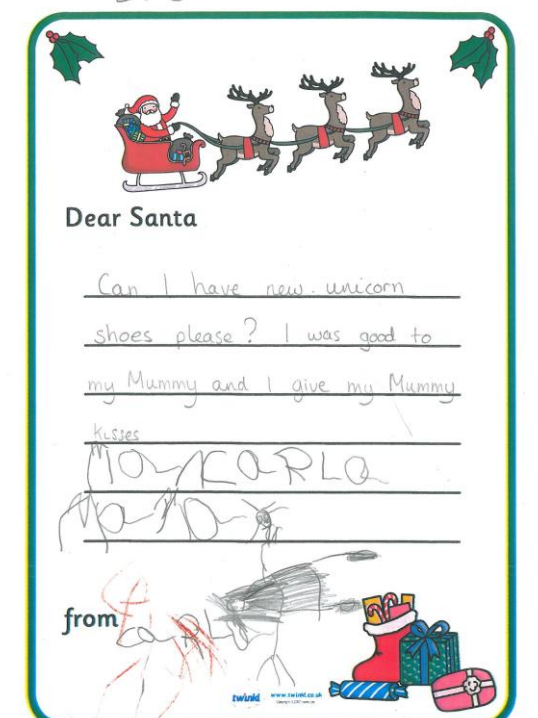 Dear Santa
Can I have new unicorn
shoes please? I was good to
my Mummy and I give my Mummy
kisses
from
twinkl www.twinkl.co.uk